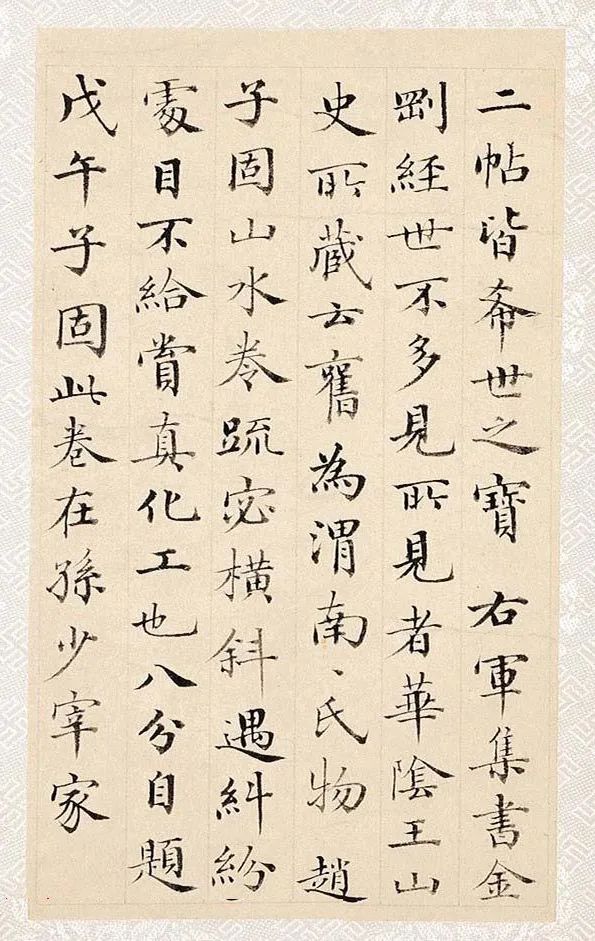 二帖皆希世之寶 右軍集書金
剛經世不多見所見者華陰王山
史所藏云舊為渭南、氏物 趙
子固山水卷疏宻橫斜遇糾紛
處目不給賞真化工也八分自題
戊午子固此卷在孫少宰家